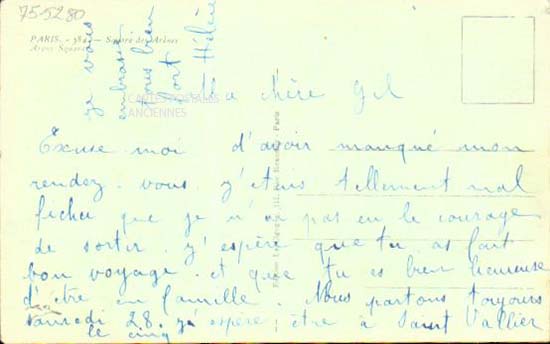 75-5280
PARIS. - 384. - Square des Arènes
Arens Square
CARTES POSTALES
ANCIENNES
Ma chère Gil
Excuse moi d'avoir manqué mon
rendez-vous. j'étais tellement mal
fichu que je n'ai pas eu le courage
de sortir. j'espère que tu as fait
bon voyage. et que tu es bien heureuse
d'être en famille. Nous partons toujours
samedi 28. j'espère être à Saint Vallier
le cinq
je vous
embrasse
tous bien
fort
Hélène